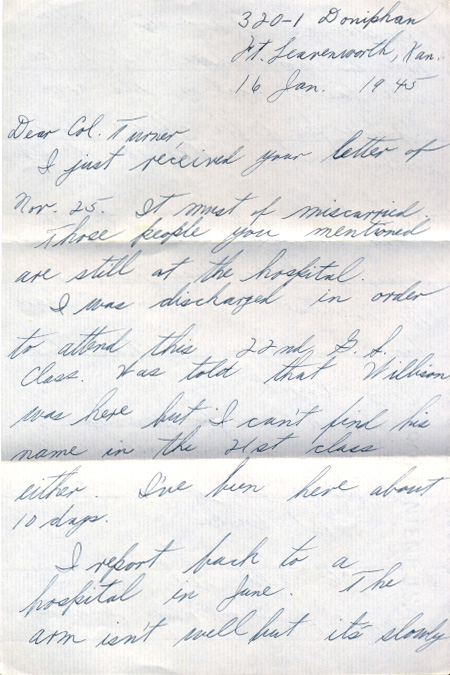 320-1 Doniphan
Ft. Leavenworth, Kan.
16 Jan. 1945
Dear Col. Turner,
I just received your letter of
Nov. 25. It must of miscarried.
Those people you mentioned
are still at the hospital.
I was discharged in order
to attend this 22nd G. S.
Class. Was told that Willison
was here but I can't find his
name in the 21st class
either. I've been here about
10 days.
I report back to a
hospital in June. The
arm isn't well but it's slowly